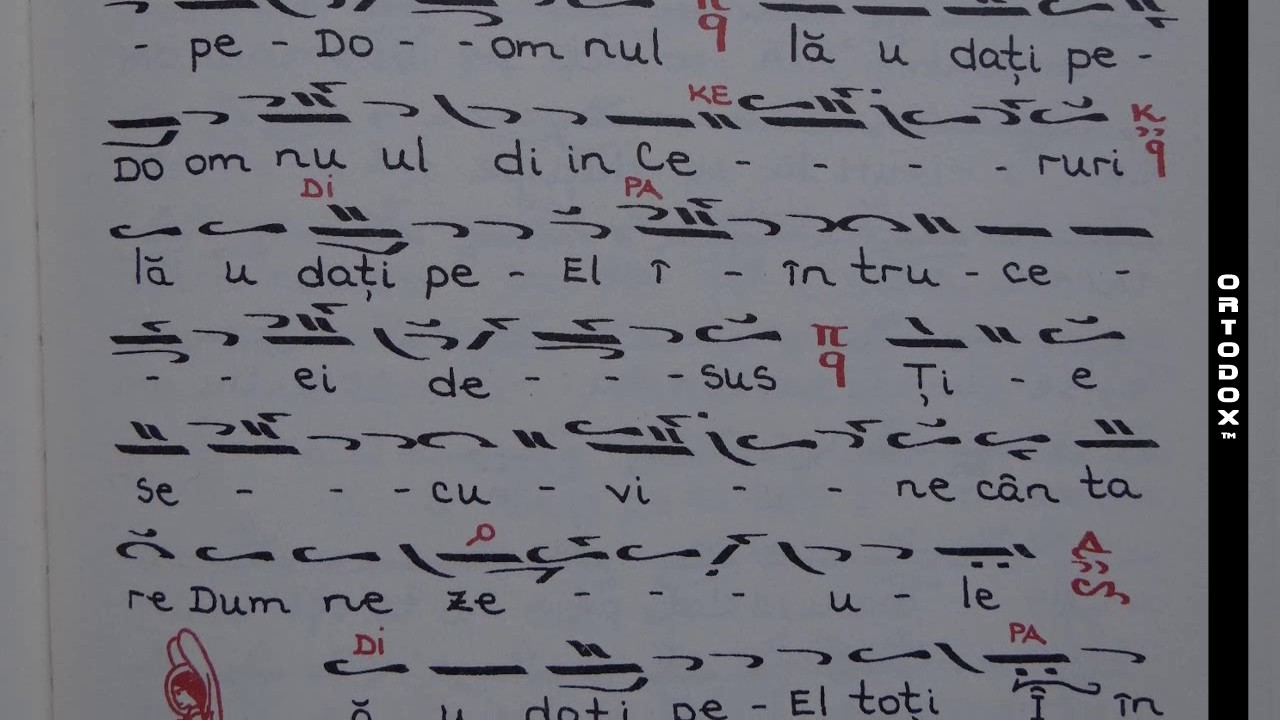 - pe - Do - - om nul π q lă u dați pe -
KE
Do om nu ul di in ce - - - - ruri K q
Di PA
lă u dați pe - El î - în tru - ce -
- - ei de - - - sus π q Ți - e
se - - - cu - vi - - ne cân ta
re Dum ne ze - - - u - le Δ
Di PA
ă u dați pe - El toți Î în
ORTODOX™